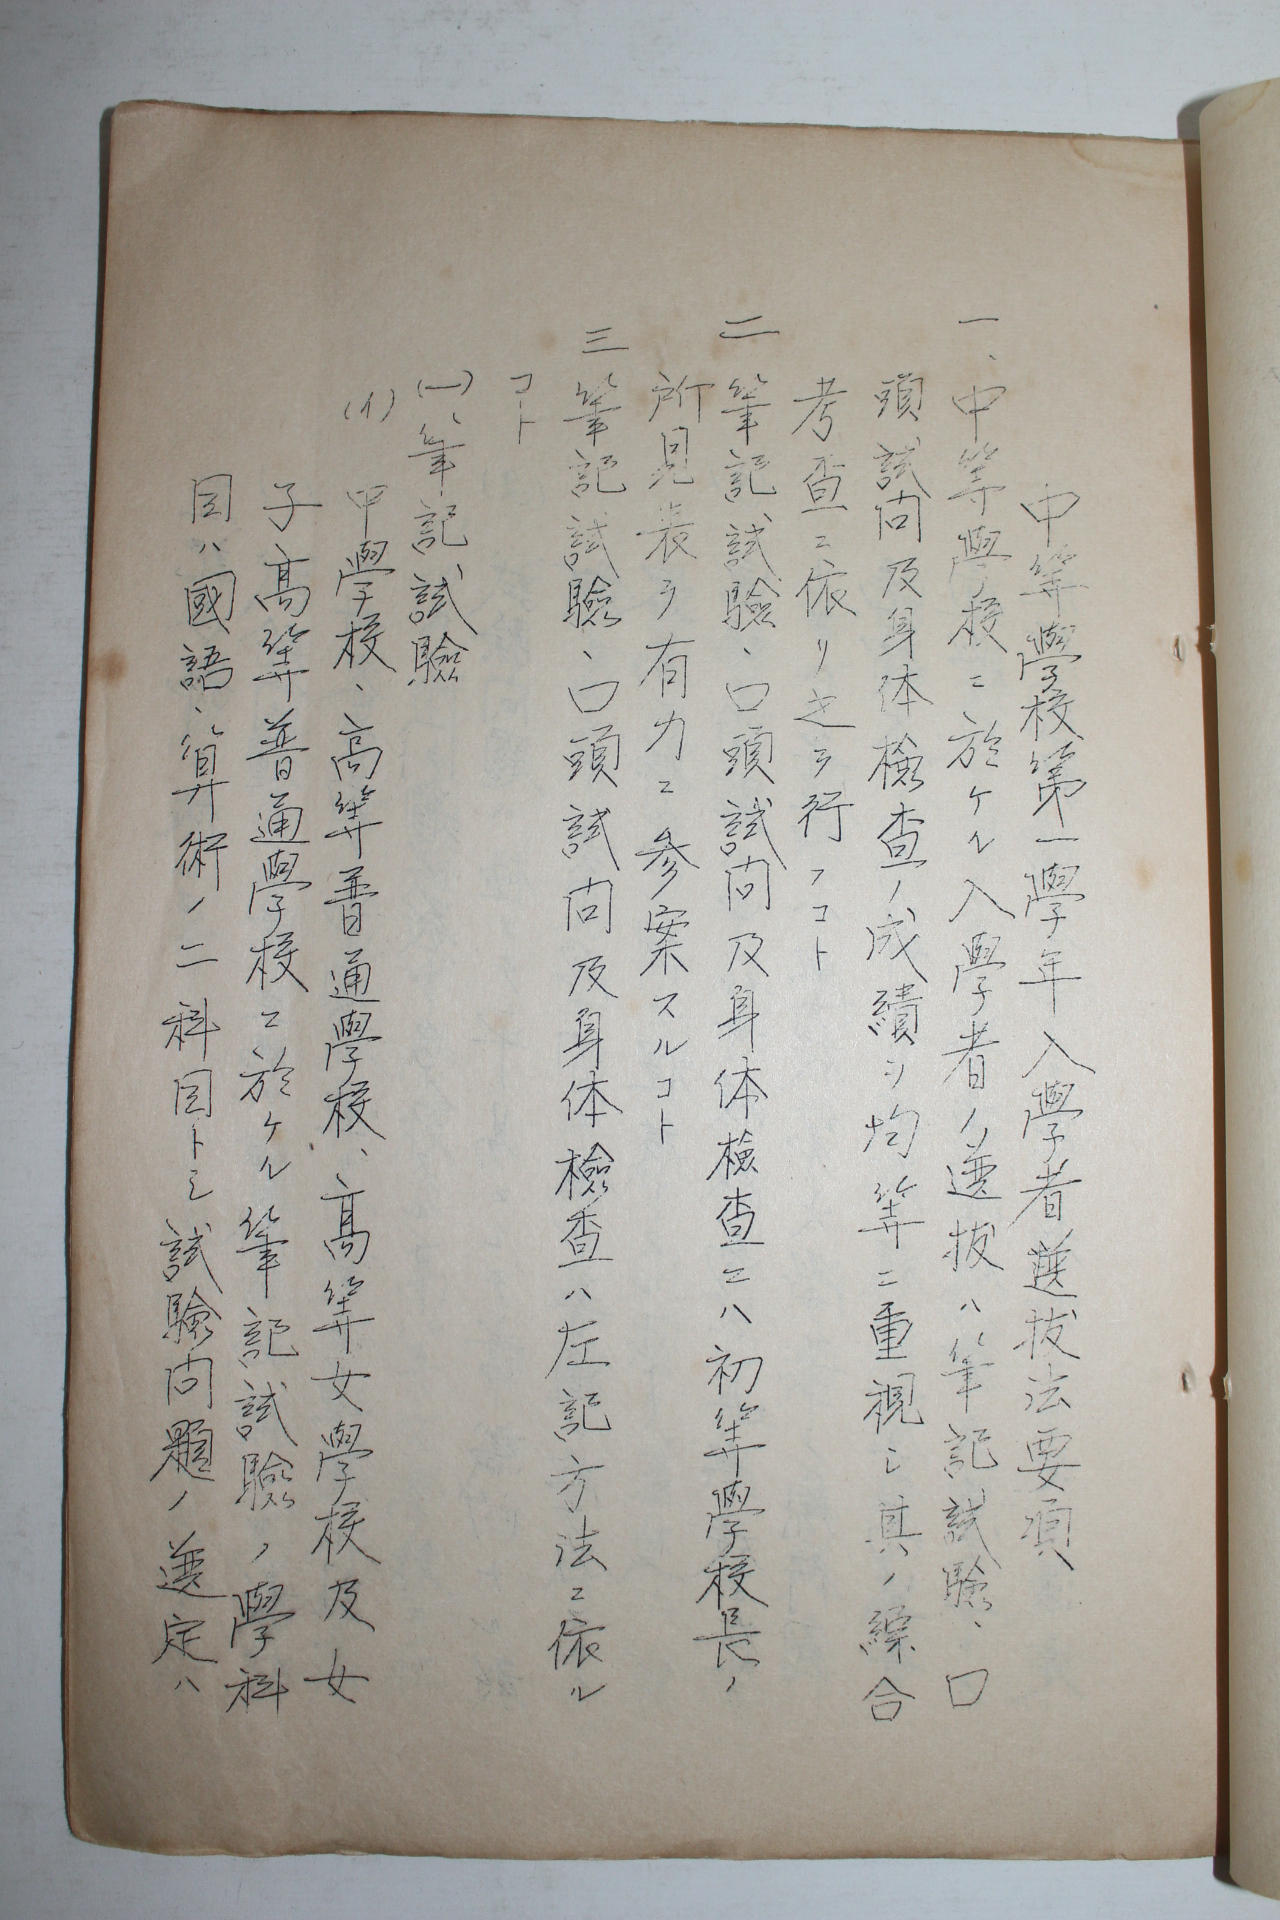 中等學校第一學年入學者選拔法要項
一、中等學校ニ於ケル入學者ノ選拔ハ筆記試驗、口
頭試問及身体檢查ノ成績ヲ均等ニ重視シ其ノ綜合
考査ニ依リ之ヲ行フコト
二 筆記試驗、口頭試問及身体檢査ニハ初等學校長ノ
所見表ヲ有力ニ参案スルコト
三 筆記試驗、口頭試問及身体檢査ハ左記方法ニ依ル
コト
(一)、筆記試驗
(イ) 中學校、高等普通學校、高等女學校及女
子高等普通學校ニ於ケル筆記試驗ノ學科
目ハ國語、算術ノ二科目トシ試驗問題ノ選定ハ